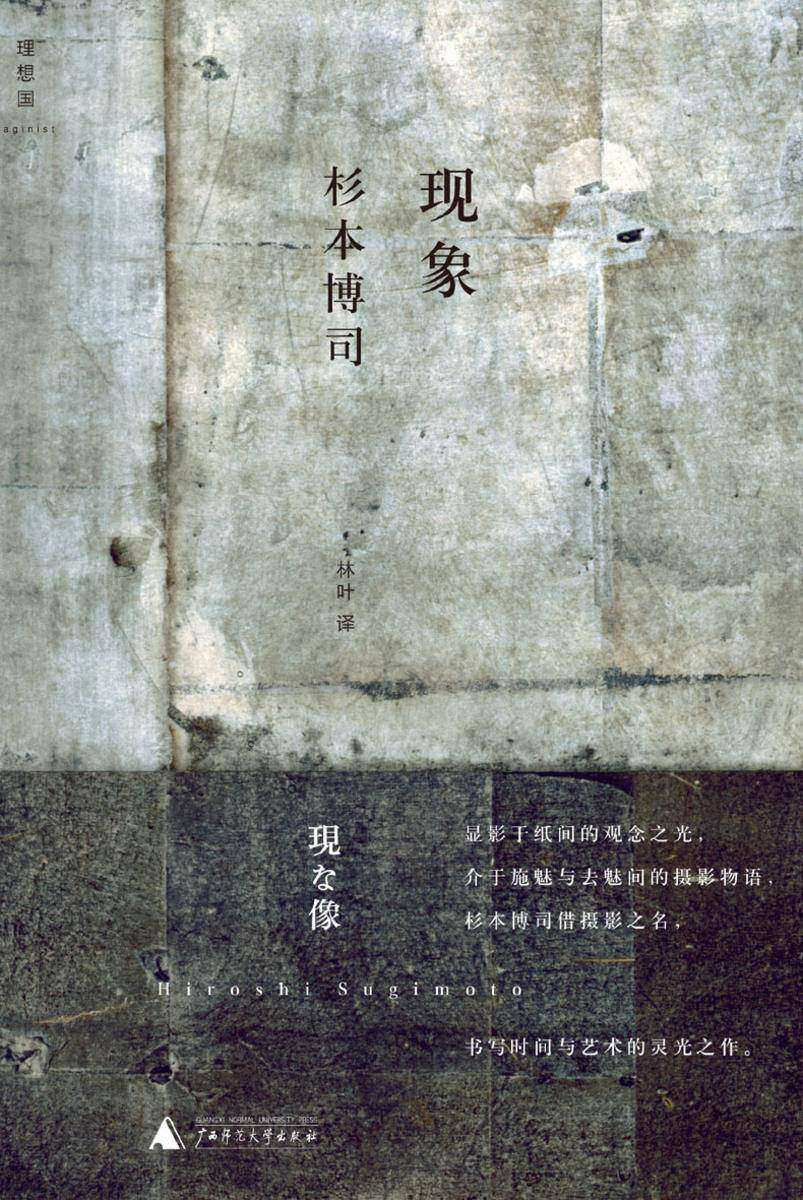 理想国
aginist
现象
杉本博司
林叶 译
現な像
显影于纸间的观念之光，
介于施魅与去魅间的摄影物语，
杉本博司借摄影之名，
Hiroshi Sugimoto
书写时间与艺术的灵光之作。
GUANGXI NORMAL UNIVERSITY PRESS
广西师范大学出版社